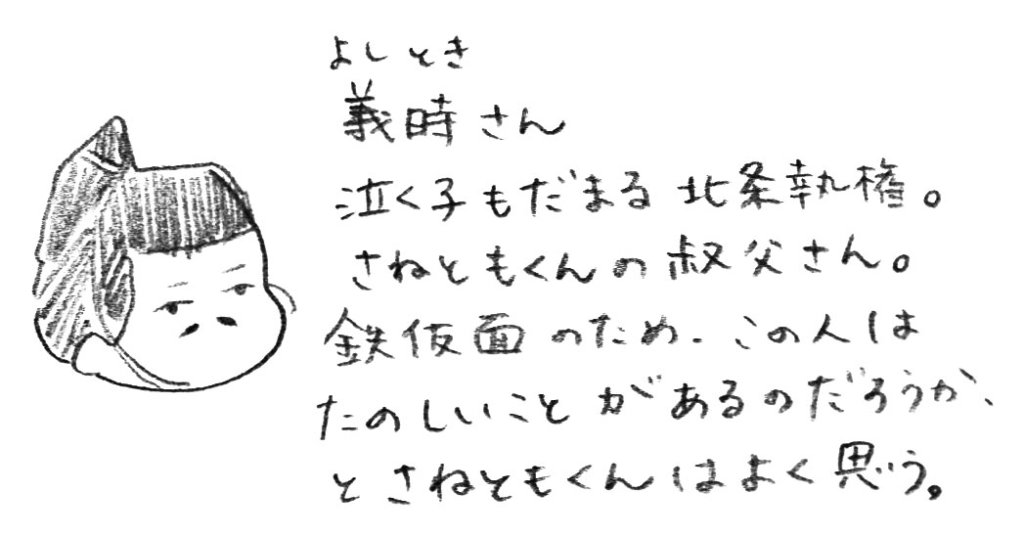 よしとき
義時さん
泣く子もだまる 北条執権。
さねともくんの叔父さん。
鉄仮面のため、この人は
たのしいことがあるのだろうか、
とさねともくんはよく思う。